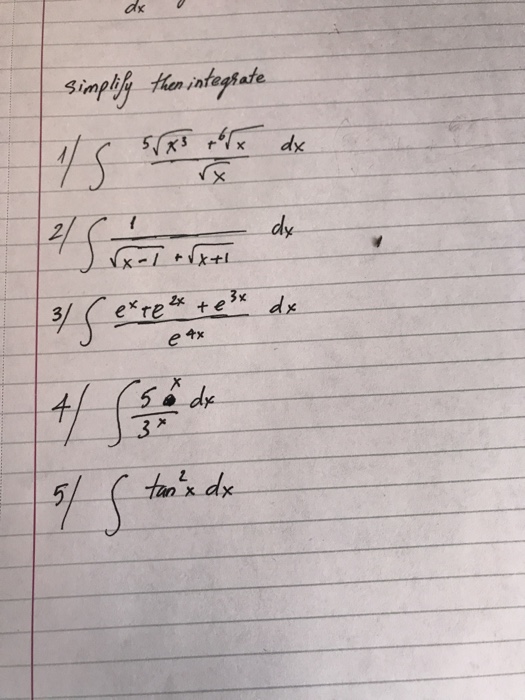 dx
simplify then integrate
1/ ∫ (⁵√x³ + ⁶√x)/√x dx
2/ ∫ 1/(√x-1 + √x+1) dx
3/ ∫ (eˣ + e²ˣ + e³ˣ)/e⁴ˣ dx
4/ ∫ 5ˣ/3ˣ dx
5/ ∫ tan²x dx